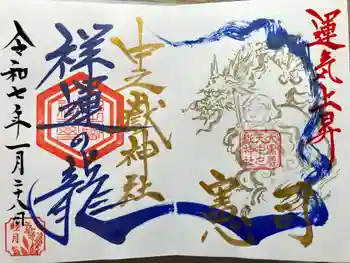 運気上昇
中之嶽神社
祥運の龍
令和七年一月二十八日
睦月